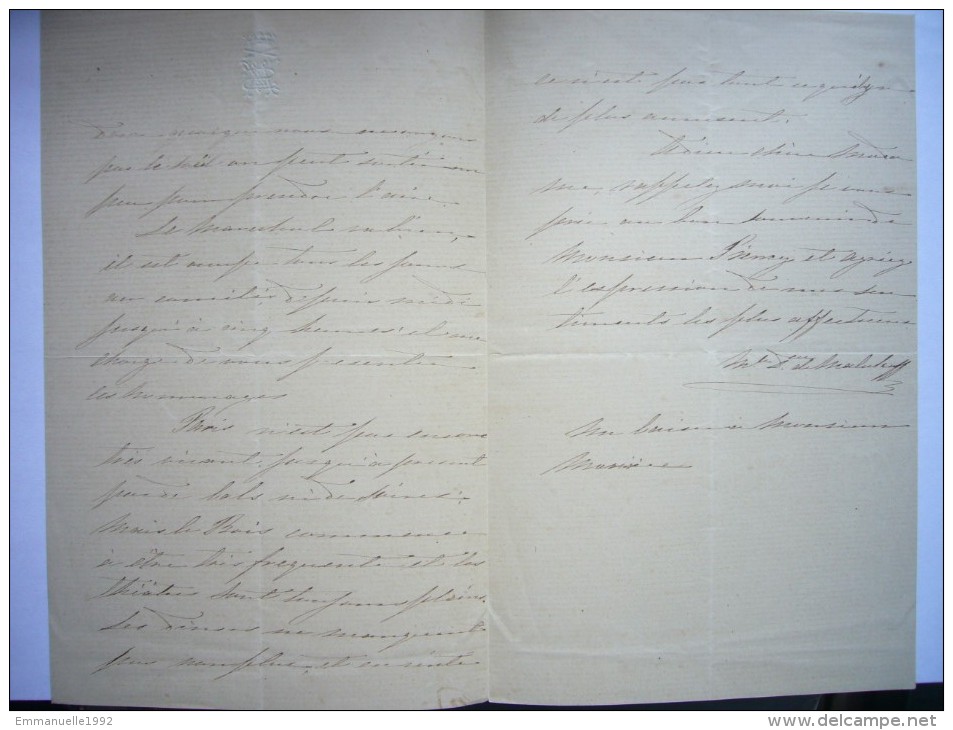 pas le midi on peut sortir un
peu pour prendre l'air.
Le Marechal va bien,
il est occupé tous les jours
au comité depuis midi
jusqu'à cinq heures; il me
charge de vous presenter
ses hommages
Paris n'est pas encore
très vivant, jusqu'à présent
pas de bals ni de soirées.
Mais le Bois commence
à être très frequenté et les
théâtres sont toujours pleins.
Les diners ne manquent
pas non plus, et
ce n'est pas tout ce qu'il y a
de plus amusant.
Adieu chère Mada
me, rappelez moi je vous
prie au bon souvenir de
Monsieur et agréez
l'expression de mes sen
timents les plus affectueux
de Malakoff
Un baiser à Monsieur
Maurice
Emmanuelle1992
http://www.delcampe.net